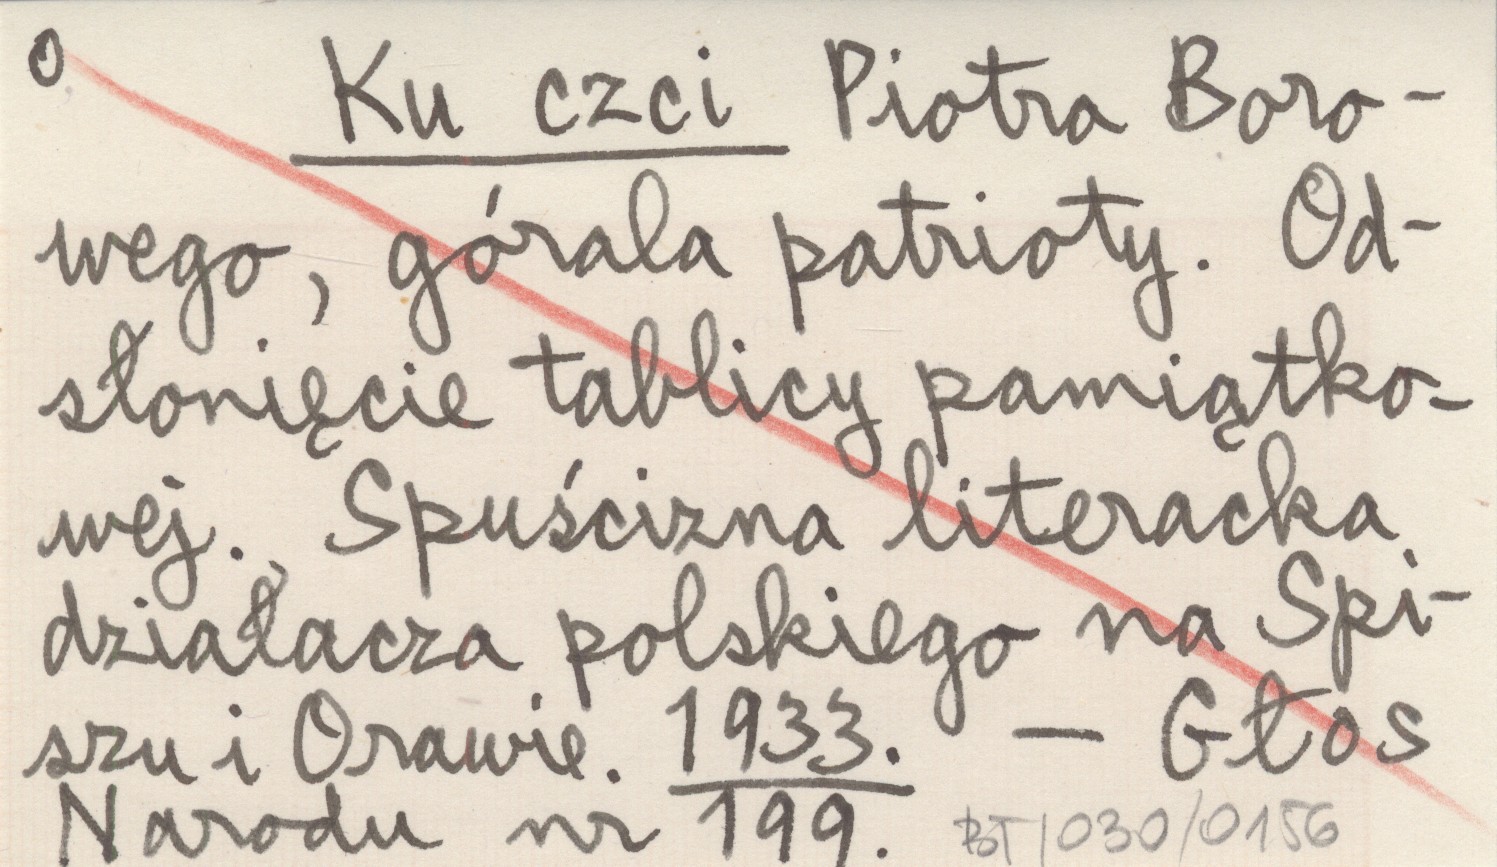 o Ku czci Piotra Boro-
wego, górala patrioty. Od-
słonięcie tablicy pamiątko-
wej. Spuścizna literacka
działacza polskiego na Spi-
szu i Orawie. 1933. — Głos
Narodu nr 199. BT/030/0156